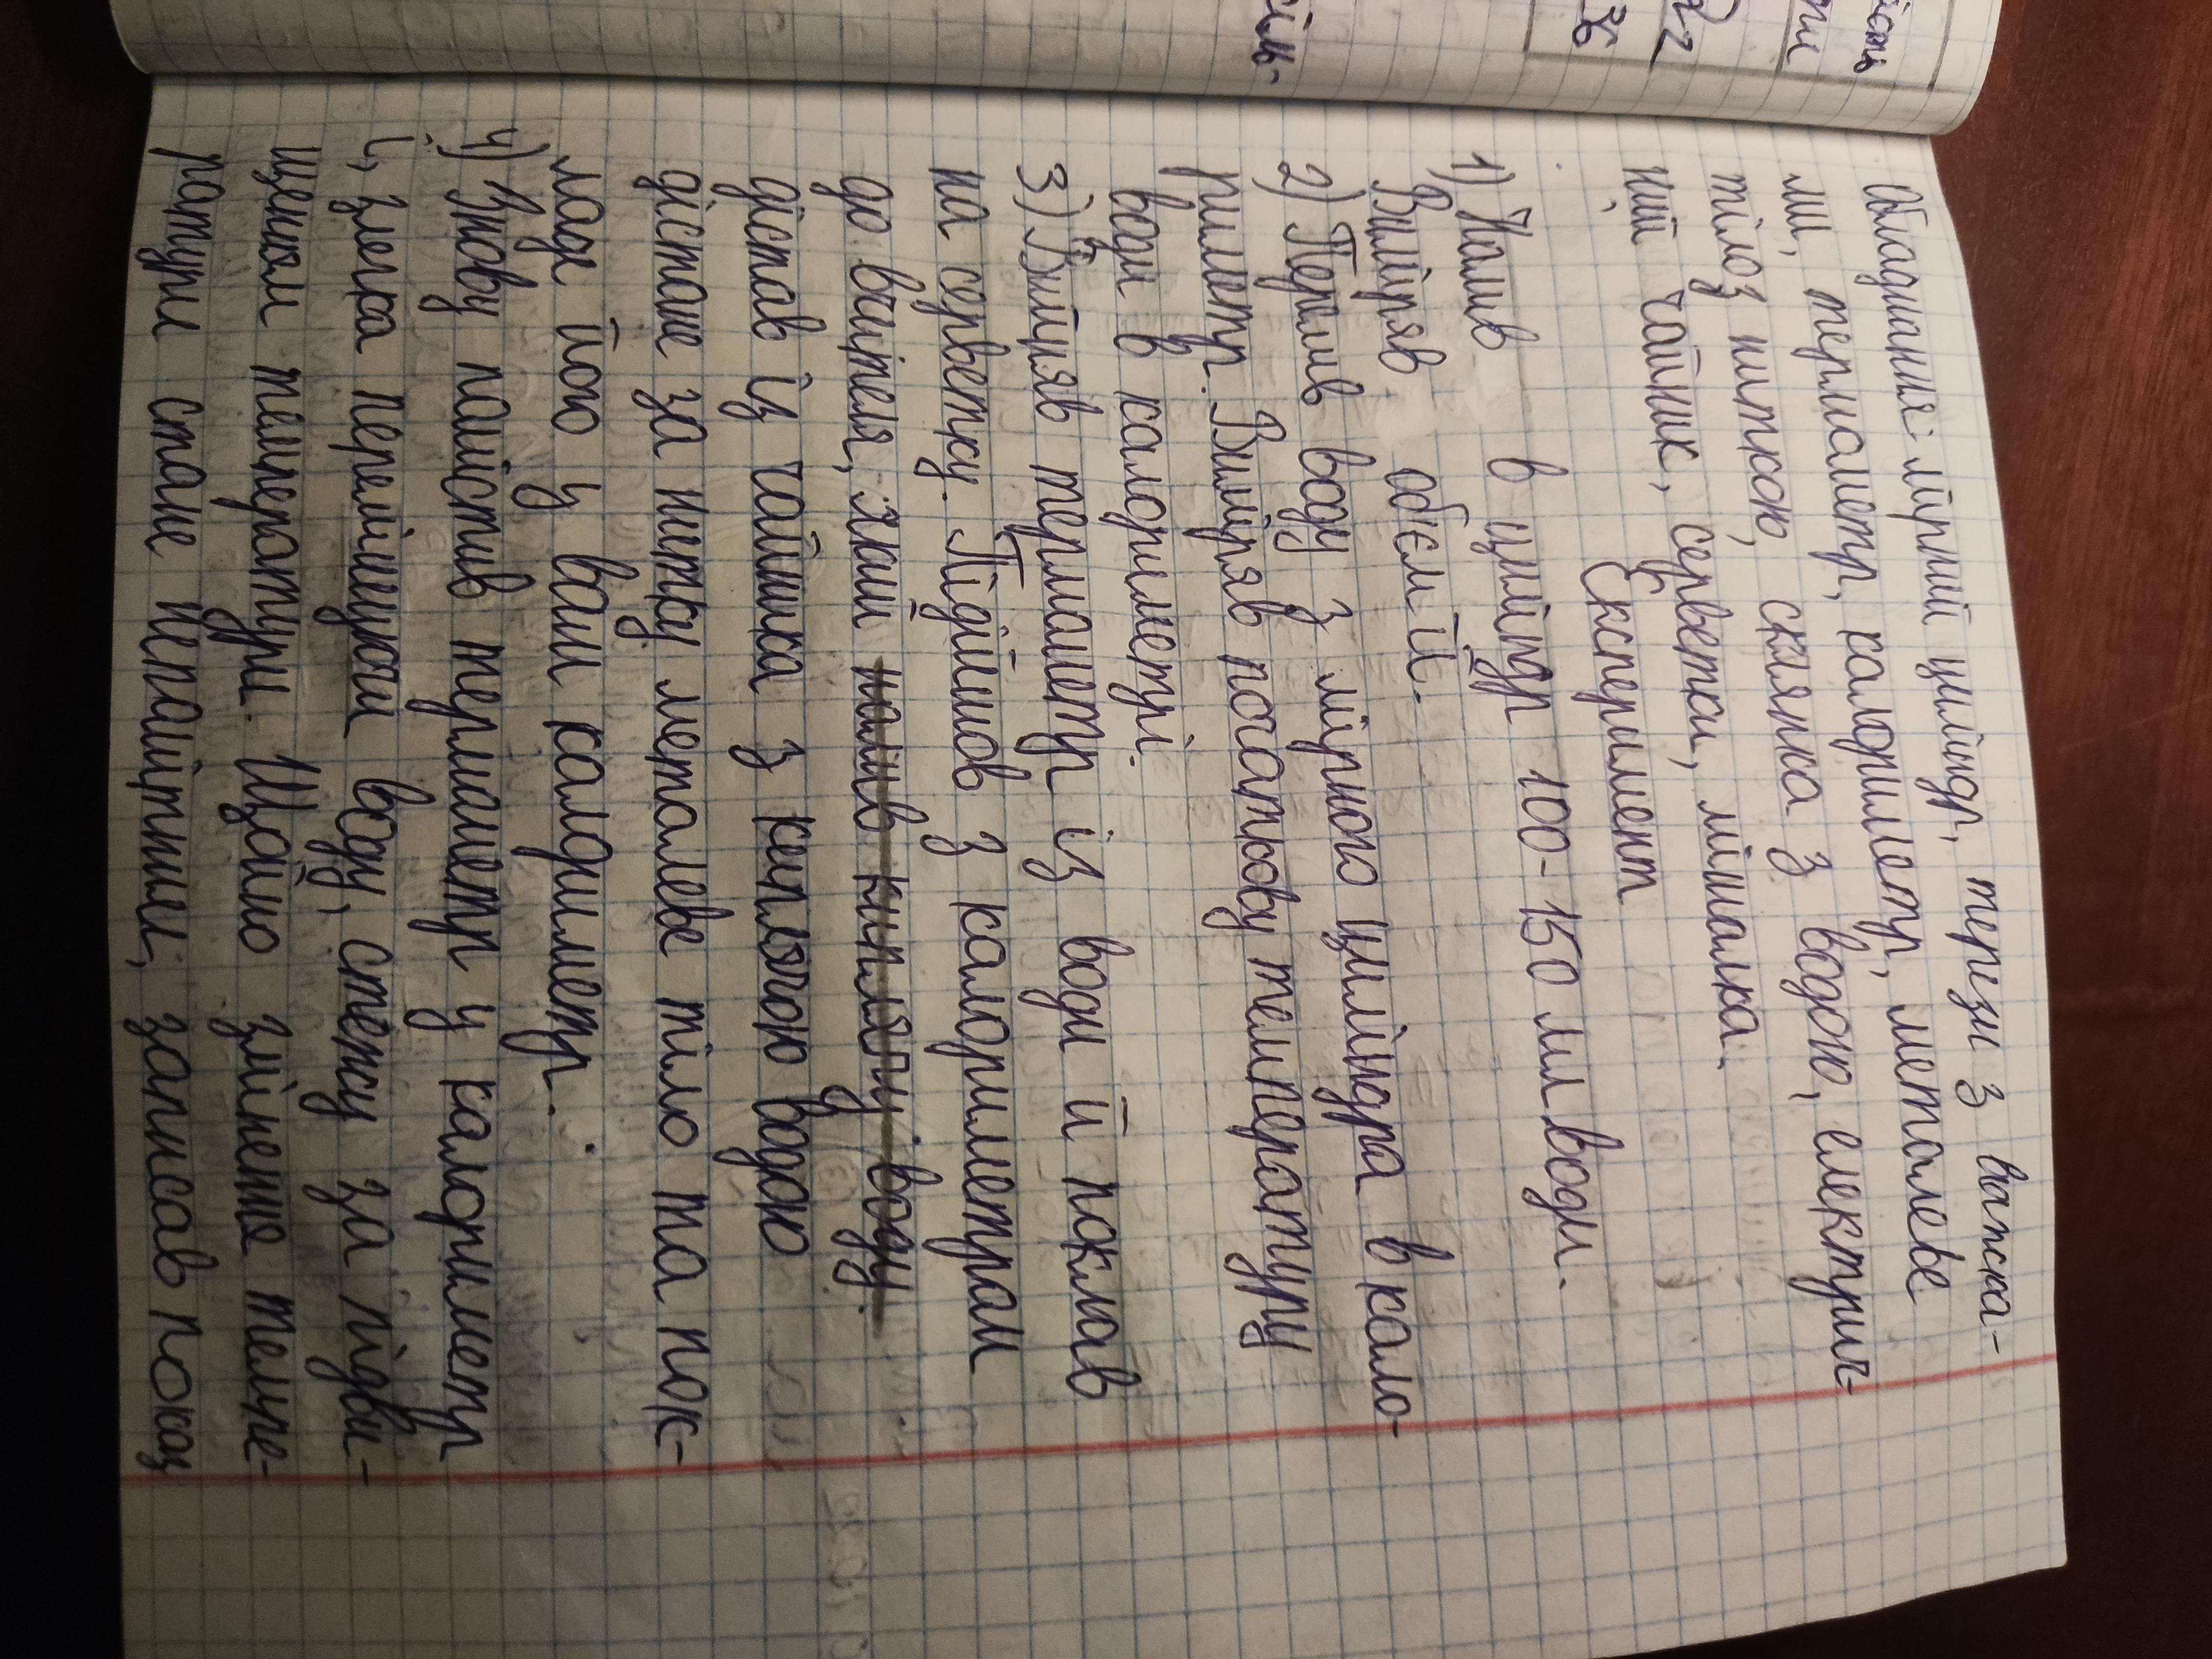 Обладнання: мірний циліндр, терези з важка-
ми, термометр, калориметр, металеве
тіло з ниткою, склянка з водою, електрич-
ний чайник, серветки, мішалка.
Експеримент
1) Налив в циліндр 100-150 мл води.
Виміряв об'єм її.
2) Перелив воду з мірного циліндра в кало-
риметр. Виміряв початкову температуру
води в калориметрі.
3) Вийняв термометр із води й поклав
на серветку. Підійшов з калориметром
до вчителя, який налив киплячу воду.
дістав із чайника з киплячою водою
дістане за нитку металеве тіло та пок-
ладе його у ваш калориметр.
4) Знову помістив термометр у калориметр
і, злегка перемішуючи воду, стежу за підви-
щеном температури. Щойно змінення темпе-
ратури стане непомітним, записав показ
ість
сіль-